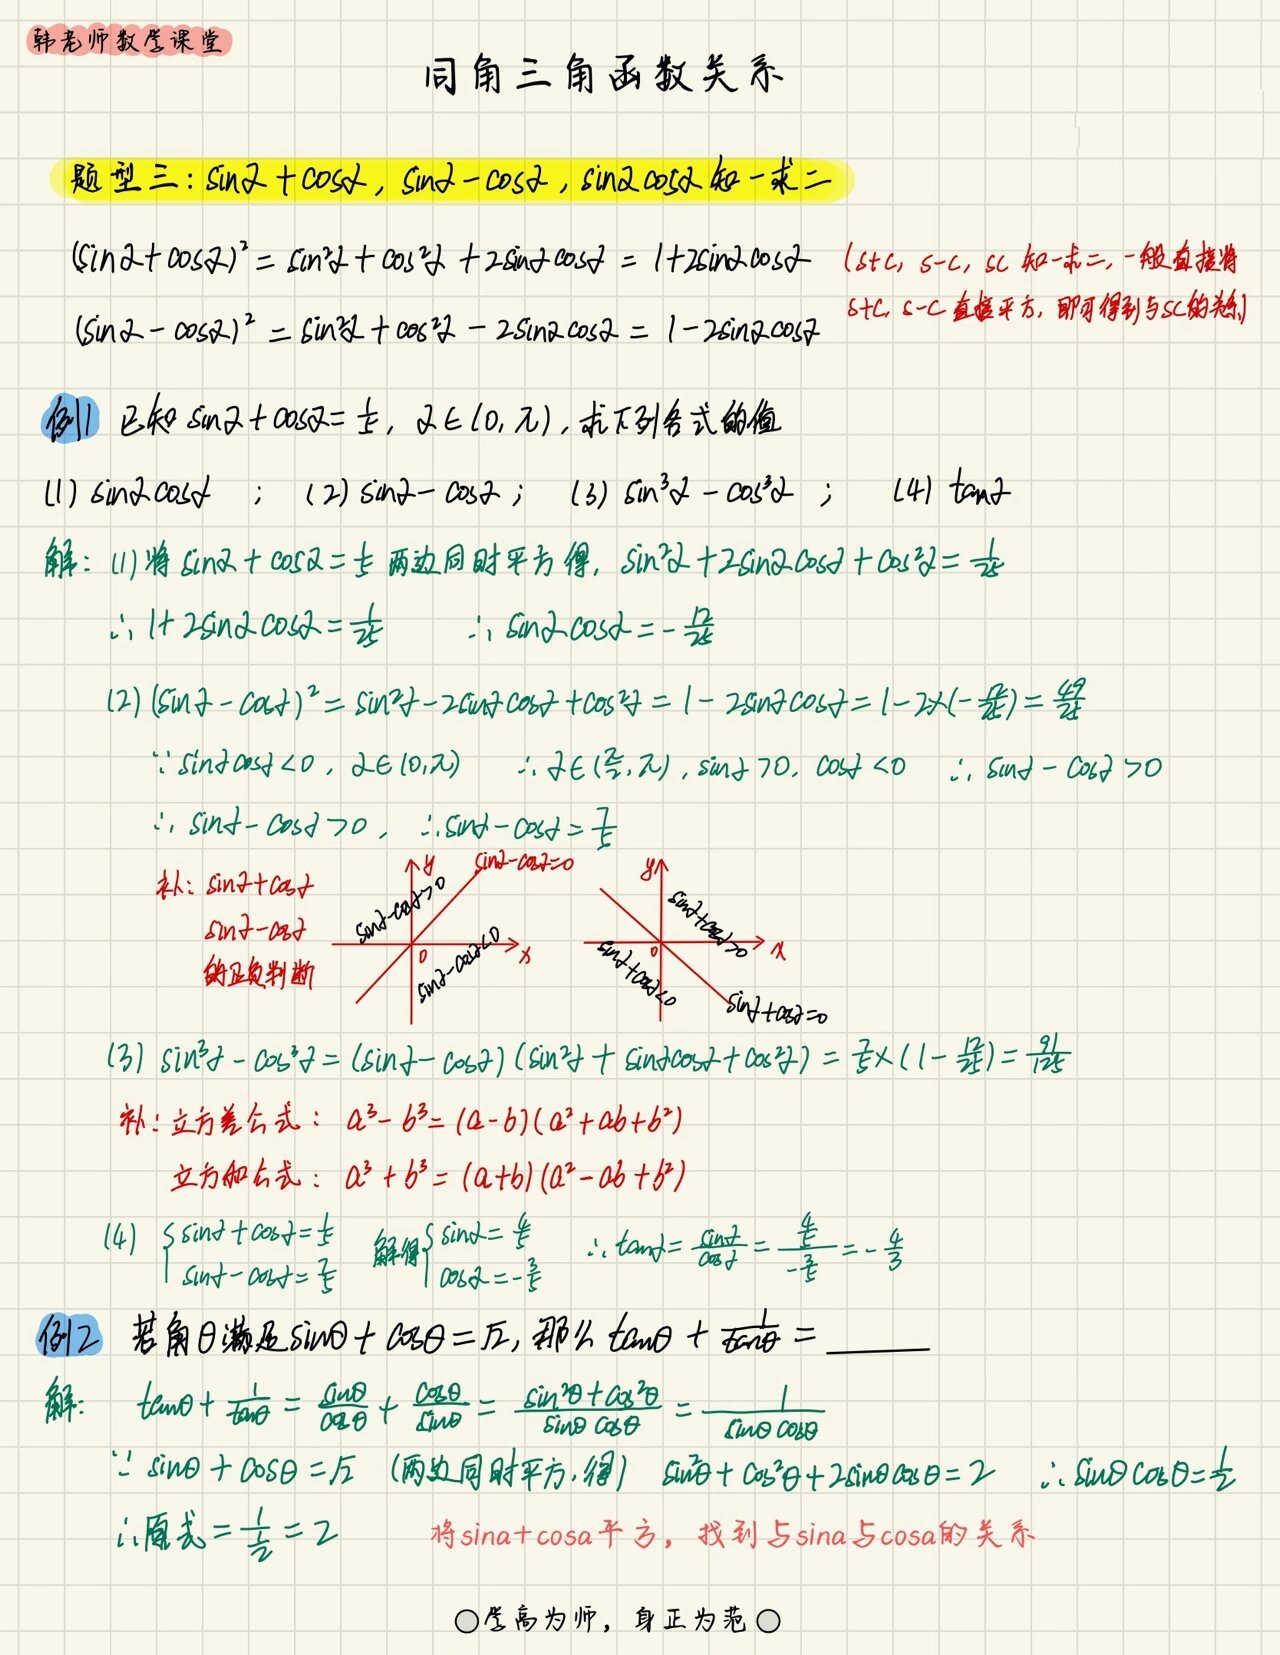 韩老师数学课堂
同角三角函数关系
题型三: sinα+cosα, sinα-cosα, sinαcosα 知一求二
(sinα+cosα)² = sin²α+cos²α+2sinαcosα = 1+2sinαcosα
(s+c, s-c, sc 知一求二, 一般直接将
s+c, s-c 直接平方, 即可得到与sc的关系)
(sinα-cosα)² = sin²α+cos²α-2sinαcosα = 1-2sinαcosα
例1 已知 sinα+cosα=1/5, α∈(0,π), 求下列各式的值
(1) sinαcosα ; (2) sinα-cosα ; (3) sin³α-cos³α ; (4) tanα
解: (1) 将 sinα+cosα=1/5 两边同时平方得, sin²α+2sinαcosα+cos²α=1/25
∴ 1+2sinαcosα=1/25 ∴ sinαcosα=-12/25
(2) (sinα-cosα)² = sin²α-2sinαcosα+cos²α = 1-2sinαcosα = 1-2×(-12/25) = 49/25
∵ sinαcosα<0, α∈(0,π) ∴ α∈(π/2,π), sinα>0, cosα<0 ∴ sinα-cosα>0
∴ sinα-cosα>0, ∴ sinα-cosα=7/5
补: sinα+cosα
sinα-cosα
的正负判断
y
sinα-cosα=0
sinα-cosα>0
O
x
sinα-cosα<0
y
sinα+cosα>0
O
x
sinα+cosα<0
sinα+cosα=0
(3) sin³α-cos³α = (sinα-cosα)(sin²α+sinαcosα+cos²α) = 7/5×(1-12/25) = 91/125
补: 立方差公式: a³-b³=(a-b)(a²+ab+b²)
立方和公式: a³+b³=(a+b)(a²-ab+b²)
(4) { sinα+cosα=1/5 sinα-cosα=7/5 解得 { sinα=4/5 cosα=-3/5 ∴ tanα = sinα/cosα = (4/5)/(-3/5) = -4/3
例2 若角θ满足sinθ+cosθ=√2, 那么 tanθ+1/tanθ = ______
解: tanθ+1/tanθ = sinθ/cosθ + cosθ/sinθ = (sin²θ+cos²θ)/(sinθcosθ) = 1/(sinθcosθ)
∵ sinθ+cosθ=√2 (两边同时平方, 得) sin²θ+cos²θ+2sinθcosθ=2 ∴ sinθcosθ=1/2
∴ 原式=1/(1/2)=2
将sina+cosa平方, 找到与sina与cosa的关系
学高为师, 身正为范